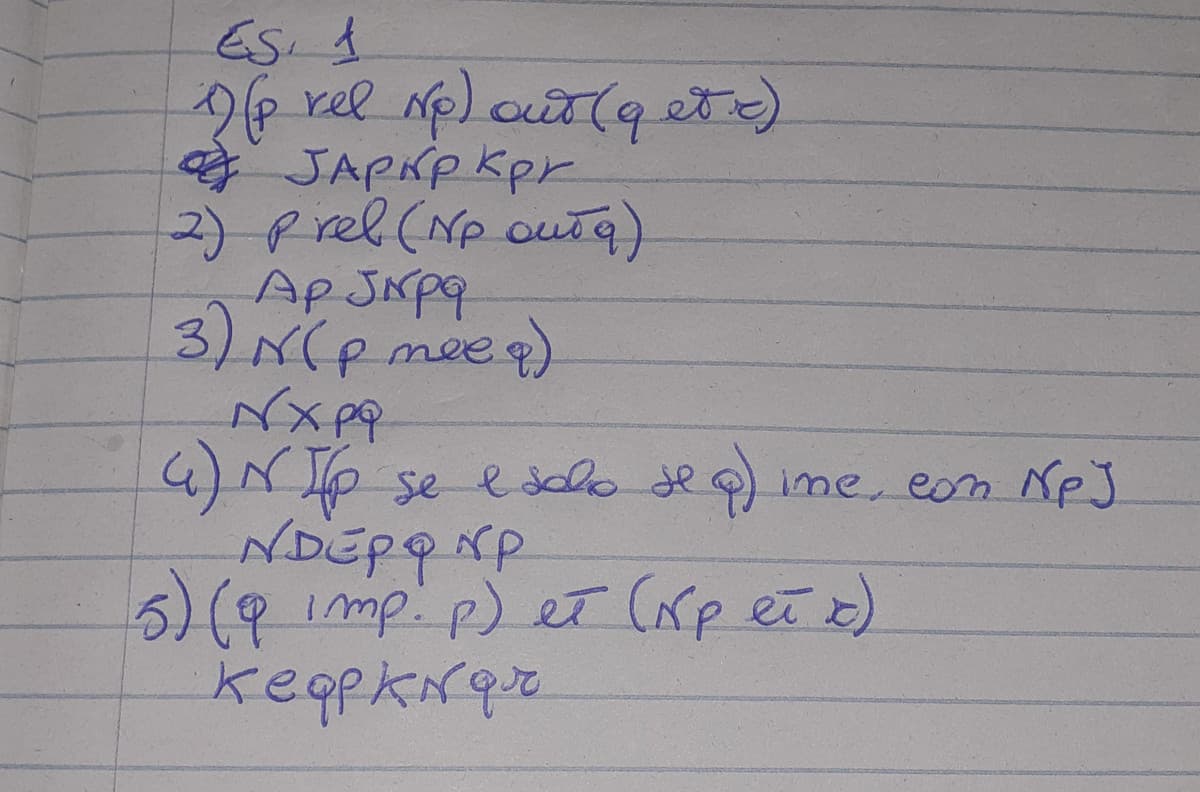 ES. 1
1) (p vel Np) aut (q et r)
JApNpKpr
2) p vel (Np aut q)
ApJNpq
3) N(p nec q)
NXpq
4) N[(p se e solo se q) inc. con Np]
NDEpqNp
5) (q imp. p) et (Np et r)
KCqpKNqr